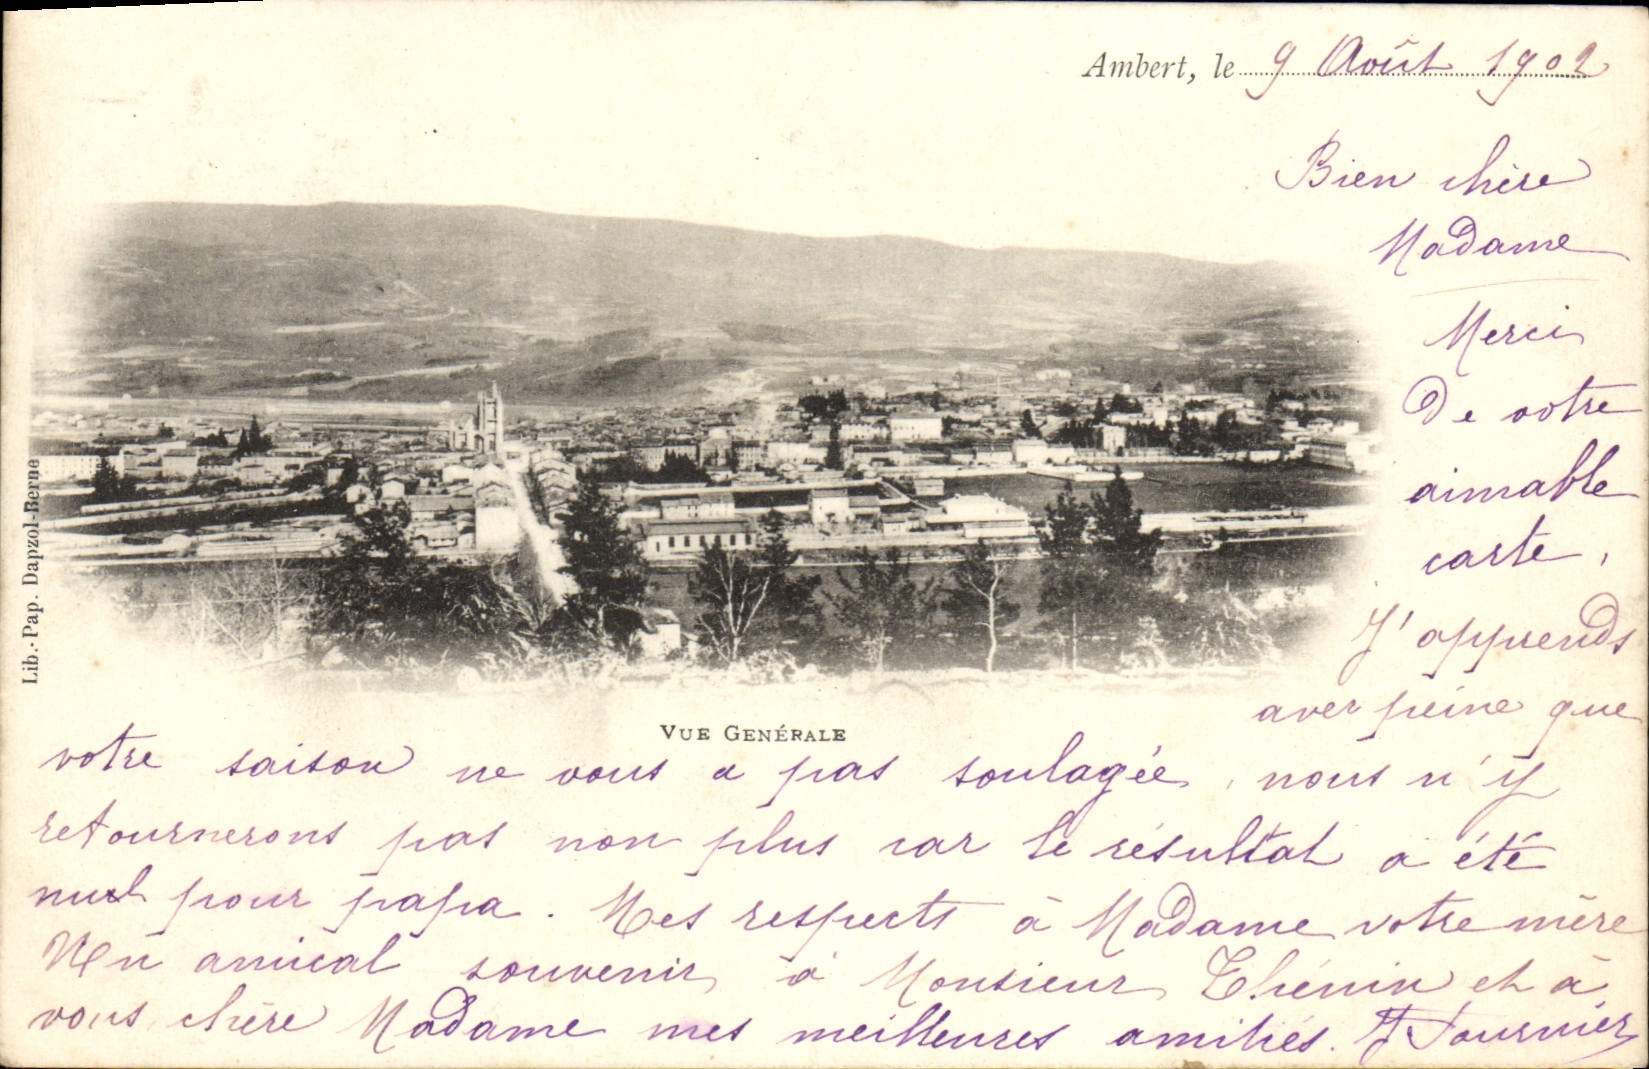 Ambert, le 9 Août 1902
Bien chère
Madame
Merci
De votre
aimable
carte,
J'apprends
avec peine que
Lib.-Pap. Dapzol-Berne
VUE GENÉRALE
votre saison ne vous a pas soulagée, nous n'y
retournerons pas non plus car le résultat a été
nul pour papa. Mes respects à Madame votre mère
Un amical souvenir à Monsieur Thénin et à
vous chère Madame mes meilleures amitiés. Fournier